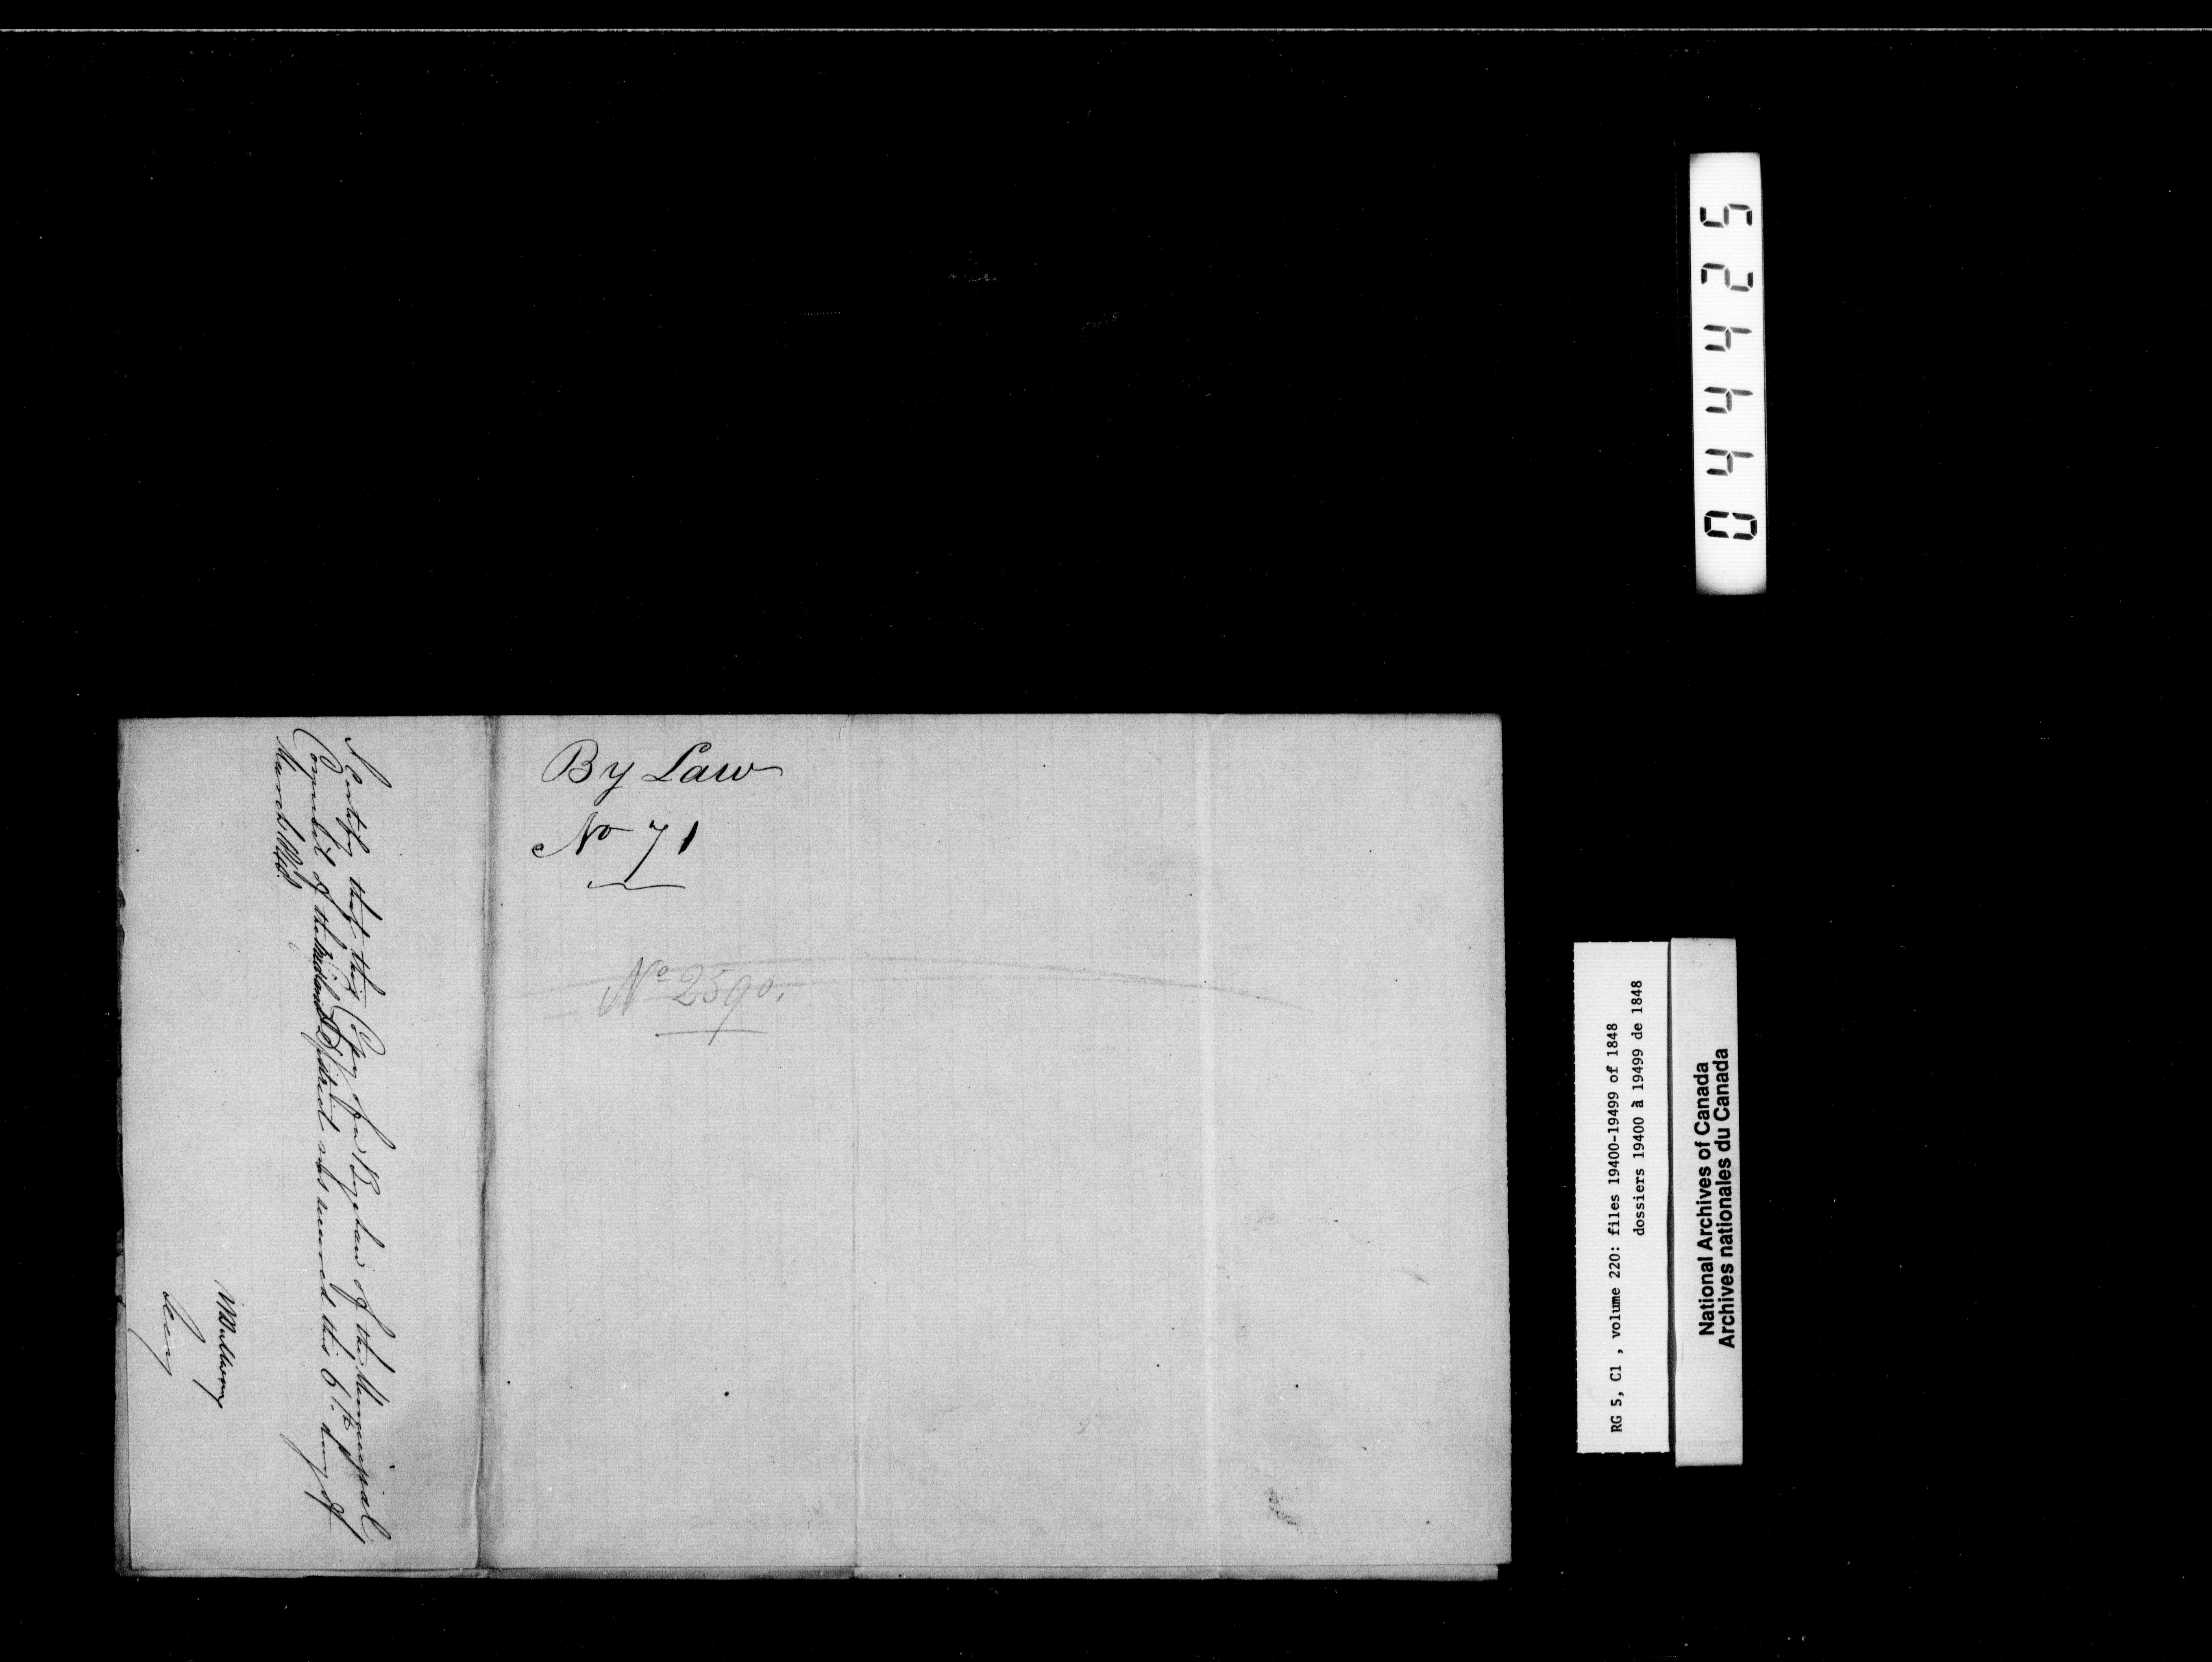 By Law
No 71
No 2590.
I Certify that this Copy of a Bye Law of the Municipal
Council of the Midland District was received this 6th day of
March 1848.
Secy
044425
RG 5, C1 , volume 220: files 19400-19499 of 1848
dossiers 19400 à 19499 de 1848
National Archives of Canada
Archives nationales du Canada